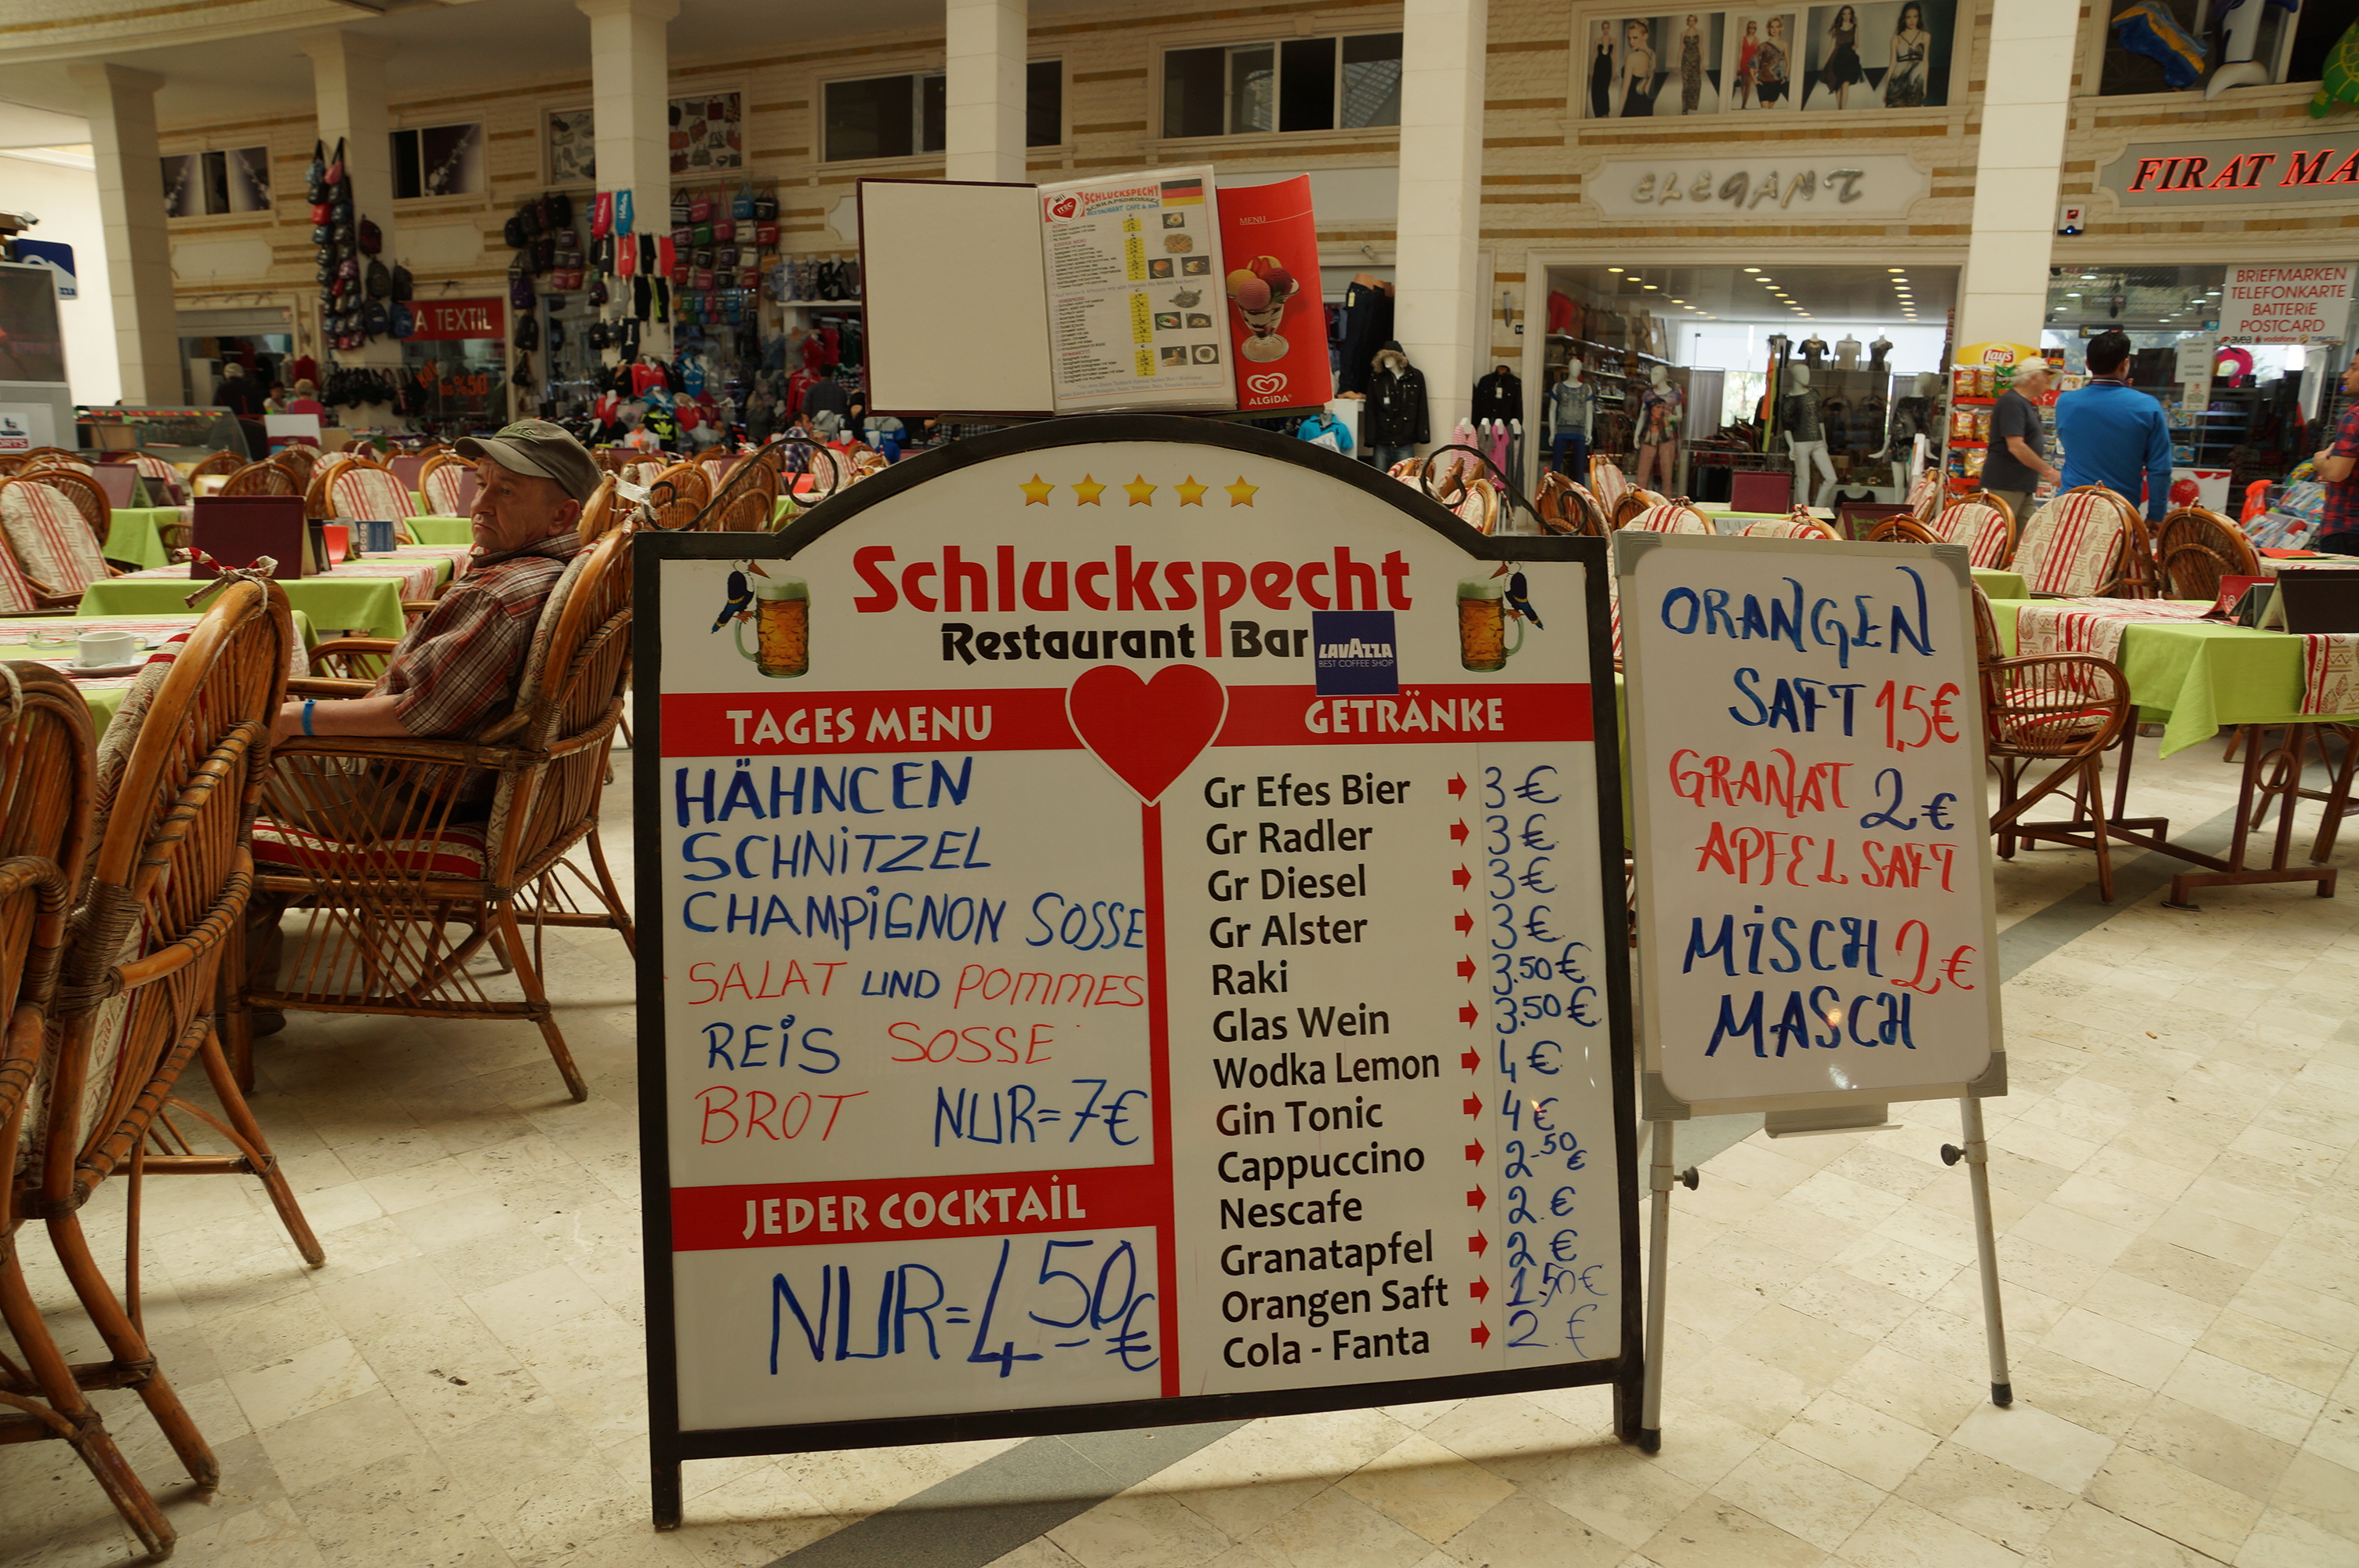 ELEGANT
FIRAT MA
BRİEFMARKEN
TELEFONKARTE
BATTERİE
POSTCARD
A TEXTIL
%50
Lay's
SCHLUCKSPECHT
MENU
ALGIDA
Schluckspecht
Restaurant Bar
LAVAZZA
BEST COFFEE SHOP
TAGES MENU
HÄHNCEN
SCHNİTZEL
CHAMPİGNON SOSSE
SALAT UND POMMES
REİS SOSSE
BROT NUR=7€
JEDER COCKTAİL
NUR=4,50€
GETRÄNKE
Gr Efes Bier 3€
Gr Radler 3€
Gr Diesel 3€
Gr Alster 3€
Raki 3.50€
Glas Wein 3.50€
Wodka Lemon 4€
Gin Tonic 4€
Cappuccino 2.50€
Nescafe 2.€
Granatapfel 2€
Orangen Saft 1.50€
Cola - Fanta 2.€
ORANGEN
SAFT 1,5€
GRANAT 2€
APFEL SAFT
MİSCH 2€
MASCH